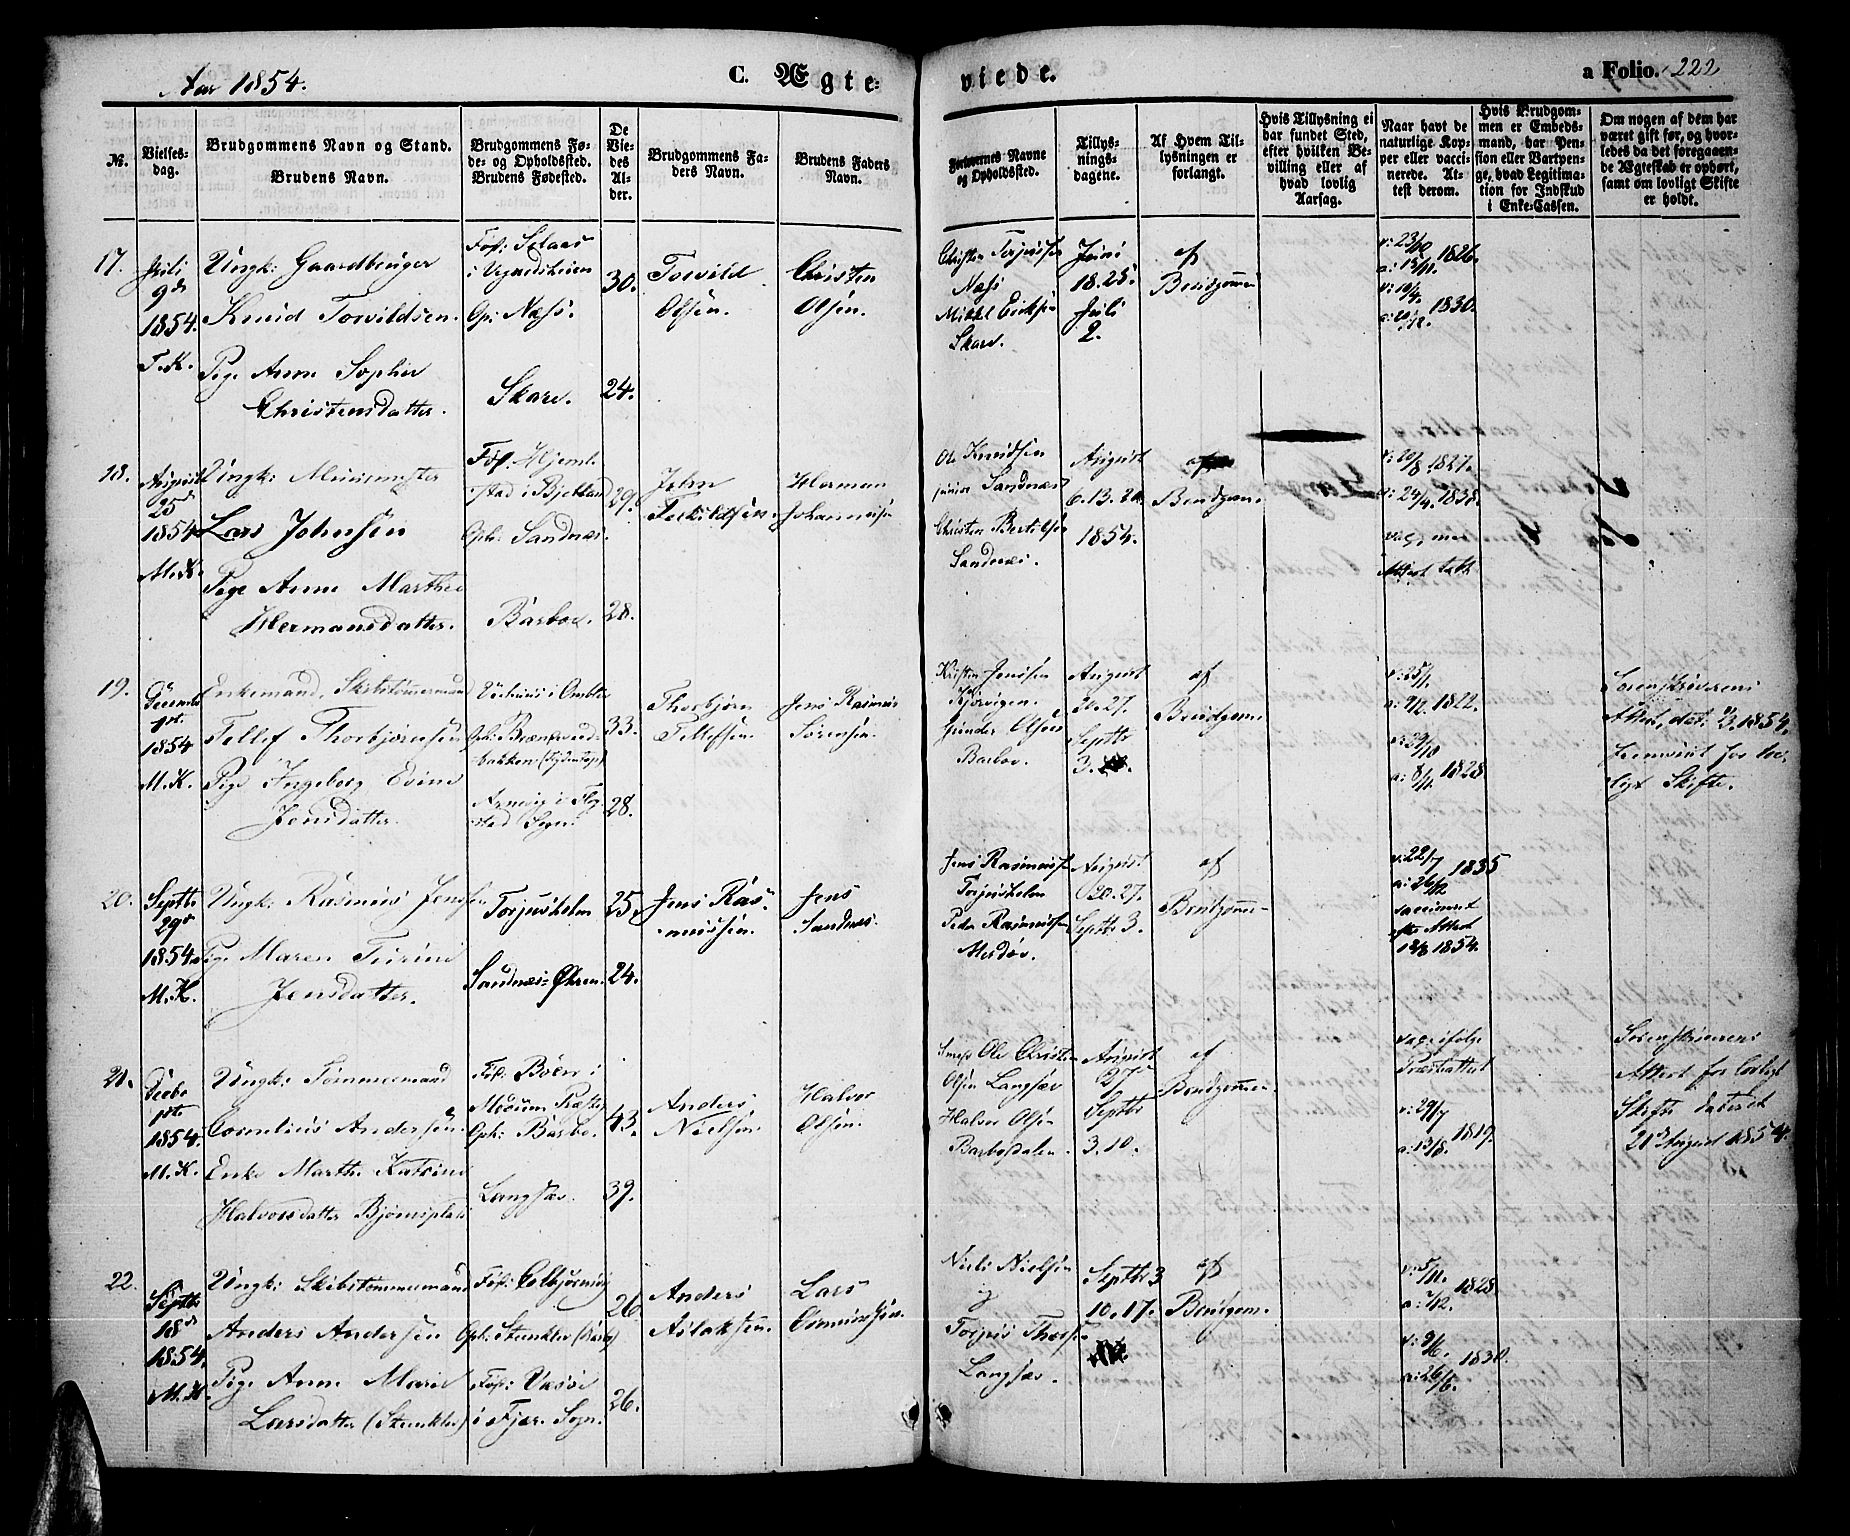 Aar 1854.
C. Ægte-
viede.
a Folio. 222
No.
Vielses-
dag.
Brudgommens Navn og Stand.
Brudens Navn.
Brudgommens Fø-
de- og Opholdssted.
Brudens Fødested.
De
Vie-
des
Al-
der.
Brudgommens Fa-
ders Navn.
Brudens Faders
Navn.
Forlovernes Navne
og Opholdssted.
Tillys-
nings-
dagene.
Af Hvem Til-
lysningen er
forlangt.
Hvis Tillysning ei
har fundet Sted,
efter hvilken Be-
villing eller af
hvad lovlig
Aarsag.
Naar havt de
naturlige Kop-
per eller vacci-
nerede. At-
test derom.
Hvis Brudgom-
men er Embeds-
mand, har Pen-
sion eller Vartpen-
ge, hvad Legitima-
tion for Indskud
i Enke-Cassen.
Om nogen af dem har
været gift før, og hvor-
ledes da det foregaaen-
de Ægteskab er ophørt,
samt om lovligt Skifte
er holdt.
17.
Juli
9de
1854.
T.K.
Ungk: Gaardbruger
Knud Torvildsen.
Pige Anne Sophie
Christensdatter.
Fød: Selaas
i Vegaardsheien
Oph: Næss.
Skare.
30.
24.
Torvild
Olsen.
Christen
Olsen.
Christen Terjersen
Næss
Mikkel Eriksen
Skare.
Juni
18. 25.
Juli
2.
af
Brudgommen
v: 23/10 1826.
a: 15/11
v: 10/4 1830.
a: 20/12.
18.
August
25de
1854
M.K.
Ungk: Muurmester
Lars Johnsen
Pige Anne Marthe
Hermansdatter.
Fød: Hjemli
stad i Bjelland
Oph: Sandnæs.
Barboe.
29.
28.
John
Terkildsen.
Herman
Johannesen
Ole Knudsen
junior Sandnæs
Christen Bertelsen
Sandnæs.
August
6. 13. 20.
1854.
af
Brudgom.
v: 20/8 1827.
a: 24/4 1838.
vacc. med
Attest
19.
Decemb
1ste
1854
M.K.
Enkemand, Skibstømmermand
Tellef Thorbjørnsen
Pige Ingeborg Evine
Jensdatter.
Oph: Brænsvud-
bakken
Arnevig i Flo-
stad Sogn.
33.
28.
Thorbjørn
Tellefsen.
Jens Rasmus
Sørensen.
Kristen Jensen
Kjørvigen.
Gunder Olsen
Barboe.
August
20. 27.
Septbr
3.
af
Brudgom.
v: 25/1
a: 9/2. 1822.
v: 29/10
a: 8/11 1828.
Sorenskriverens
Attest, dat: 1854.
fremviist for lov-
ligt Skifte.
20.
Septbr
29de
1854.
M.K.
Ungk: Rasmus Jensen
Pige Maren Turine
Jensdatter.
Torjusholm
Sandnæs-Øhren.
25.
24.
Jens Ras-
mussen.
Jens
Sandnæs.
Jens Rasmussen
Torjusholm
Peder Rasmussen
Merdøe.
August
20. 27.
Septbr 3.
af
Brudgommen
v: 22/7 1835
a: 26/12
vaccineret
efter Attest
1854.
21.
Decbr
1ste
1854.
M.K.
Ungk: Tømmermand
Cornelius Andersen.
Enke Marthe Katrine
Halvorsdatter Bjørnsplads
Fød: Boen i
Oph: Barboe.
Langsæv.
43.
39.
Anders
Nielsen.
Halvor
Olsen.
Ole Christen
Olsen Langsæv
Halvor Olsen
Barbodalen.
August
27
Septbr
3. 10.
af
Brudgommen.
vac: ifølge
Præsteattest
v: 29/7
a: 13/8. 1819.
Sorenskriverens
Attest for lovligt
Skifte dateret
21de August 1854.
22.
Septbr
18de
1854.
M.K.
Ungk: Skibstømmermand
Anders Andersen
Pige Anne Marie
Larsdatter (Stenkler)
Fød: Colbjørnsvig
Oph: Stenkler
i Fjære Sogn.
26
26.
Anders
Aslaksen.
Lars
Niels Nielsen
og
Torjus Thorsen
Langsæv.
Septbr 3
10. 17.
af
Brudgom.
v: 5/11. 1828
a: 7/12.
v: 9/6. 1830.
a: 26/6.